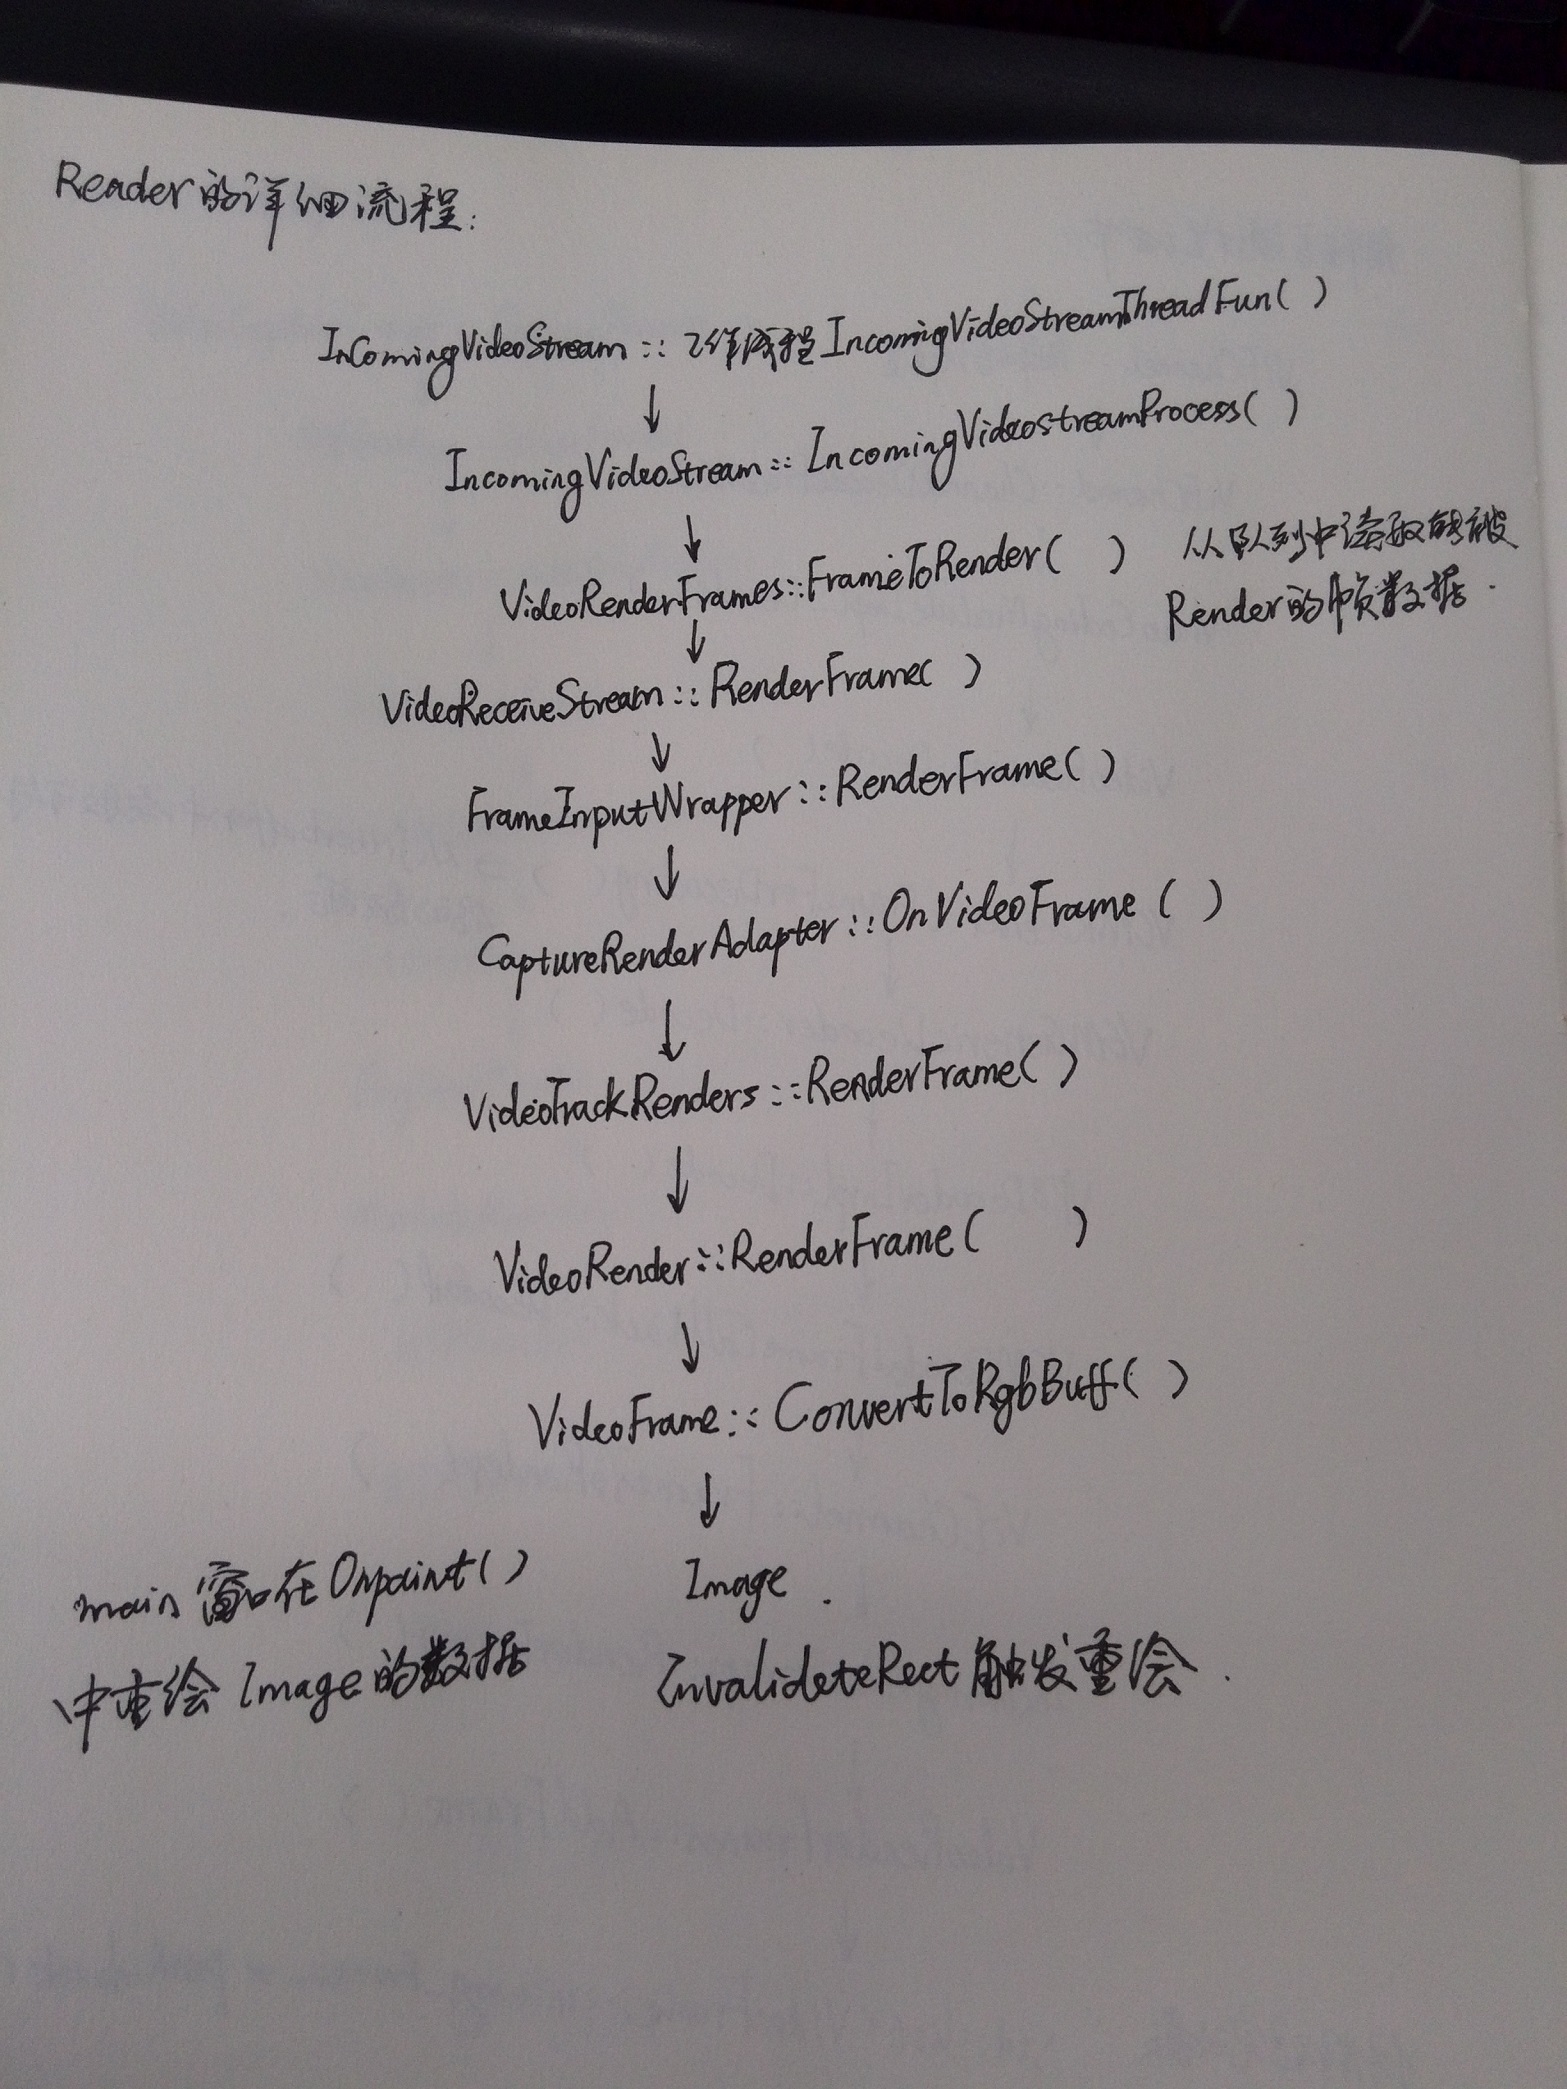 Reader的详细流程:
InComingVideoStream :: 工作线程IncomingVideoStreamThreadFun( )
↓
IncomingVideoStream :: IncomingVideostreamProcess( )
↓
VideoRenderFrames::FrameToRender( ) 从队列中读取能被
Render的帧数据.
↓
VideoReceiveStream :: RenderFrame( )
↓
FrameInputWrapper :: RenderFrame( )
↓
CaptureRenderAdapter :: OnVideoFrame ( )
↓
VideoTrackRenders :: RenderFrame( )
↓
VideoRender :: RenderFrame( )
↓
VideoFrame :: ConvertToRgbBuff( )
↓
Image .
InvalideteRect 触发重绘 .
main 窗口在 Onpaint( )
中重绘 Image的数据